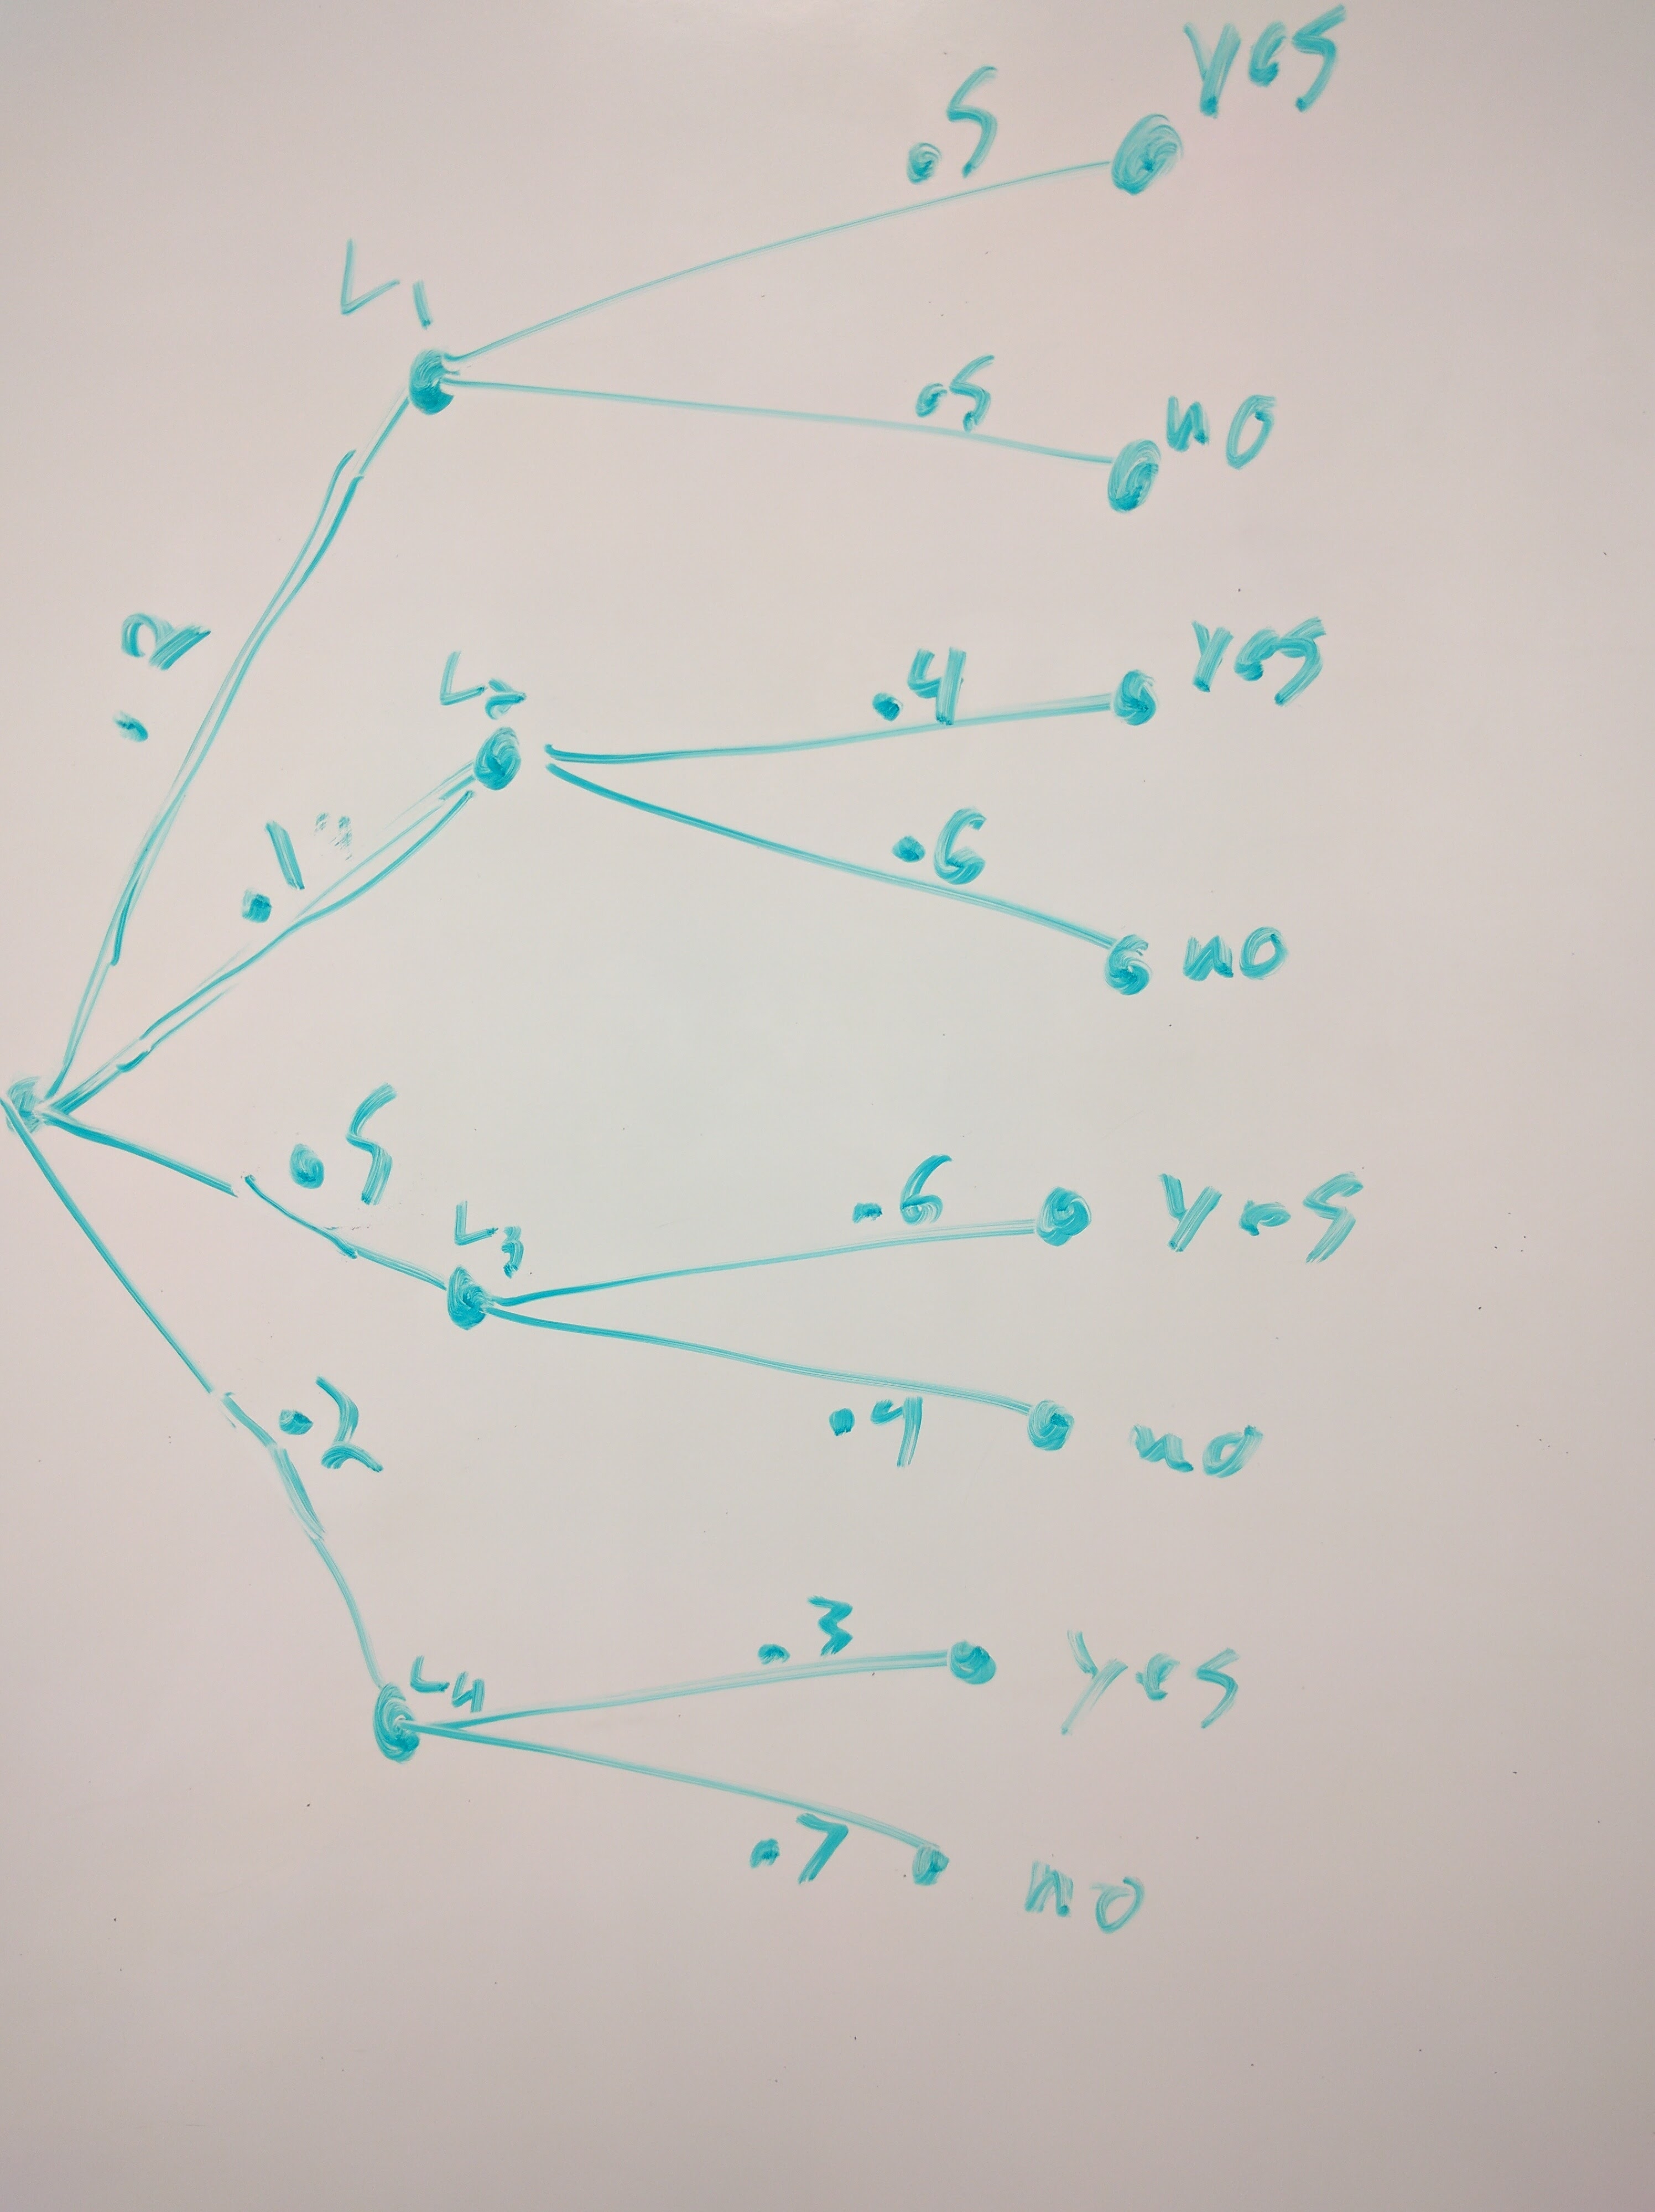 .5 yes
L1
.5 no
.2
L2 .4 yes
.1
.6 no
.5
L3 .6 yes
.4 no
.2
L4 .3 yes
.7 no